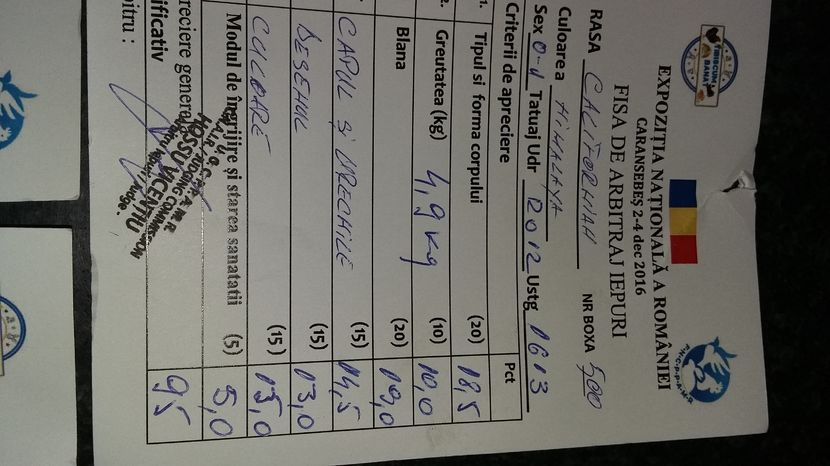 EXPOZIȚIA NAȚIONALĂ A ROMÂNIEI
CARANSEBEȘ 2-4 dec 2016
FISA DE ARBITRAJ IEPURI
RASA CALIFORNIAN NR BOXA 500
Culoarea HIMALAYA
Sex 0-1 Tatuaj Udr RO12 Ustg 0613
Criterii de apreciere Pct
1. Tipul si forma corpului (20) 18,5
2. Greutatea (kg) 4,9 kg (10) 10,0
Blana (20) 19,0
CAPUL ȘI URECHILE (15) 14,5
DESENUL (15) 13,0
CULOARE (15) 15,0
Modul de îngrijire și starea sanatatii (5) 5,0
reciere generala 95
lificativ
bitru :
MOSSU VICENTIU